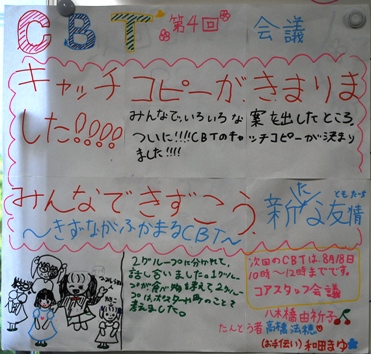 CBT 第4回 会議
キャッチコピーが、きまりま
した!!!!
みんなでいろいろな案を出したところ、
ついに!!!!CBTのキャッチコピーが決まり
ました!!!!
みんなできずこう 新たな友情
ともだち
〜きずながふかまるCBT〜
2グループに分かれて、
話し合いました。1グルー
次回のCBTは、8月18日
10時〜12時までです。
コアスタッフ会議
八木橋由祈子
たんとう者 高橋法穂
(お手伝い) 和田まゆ